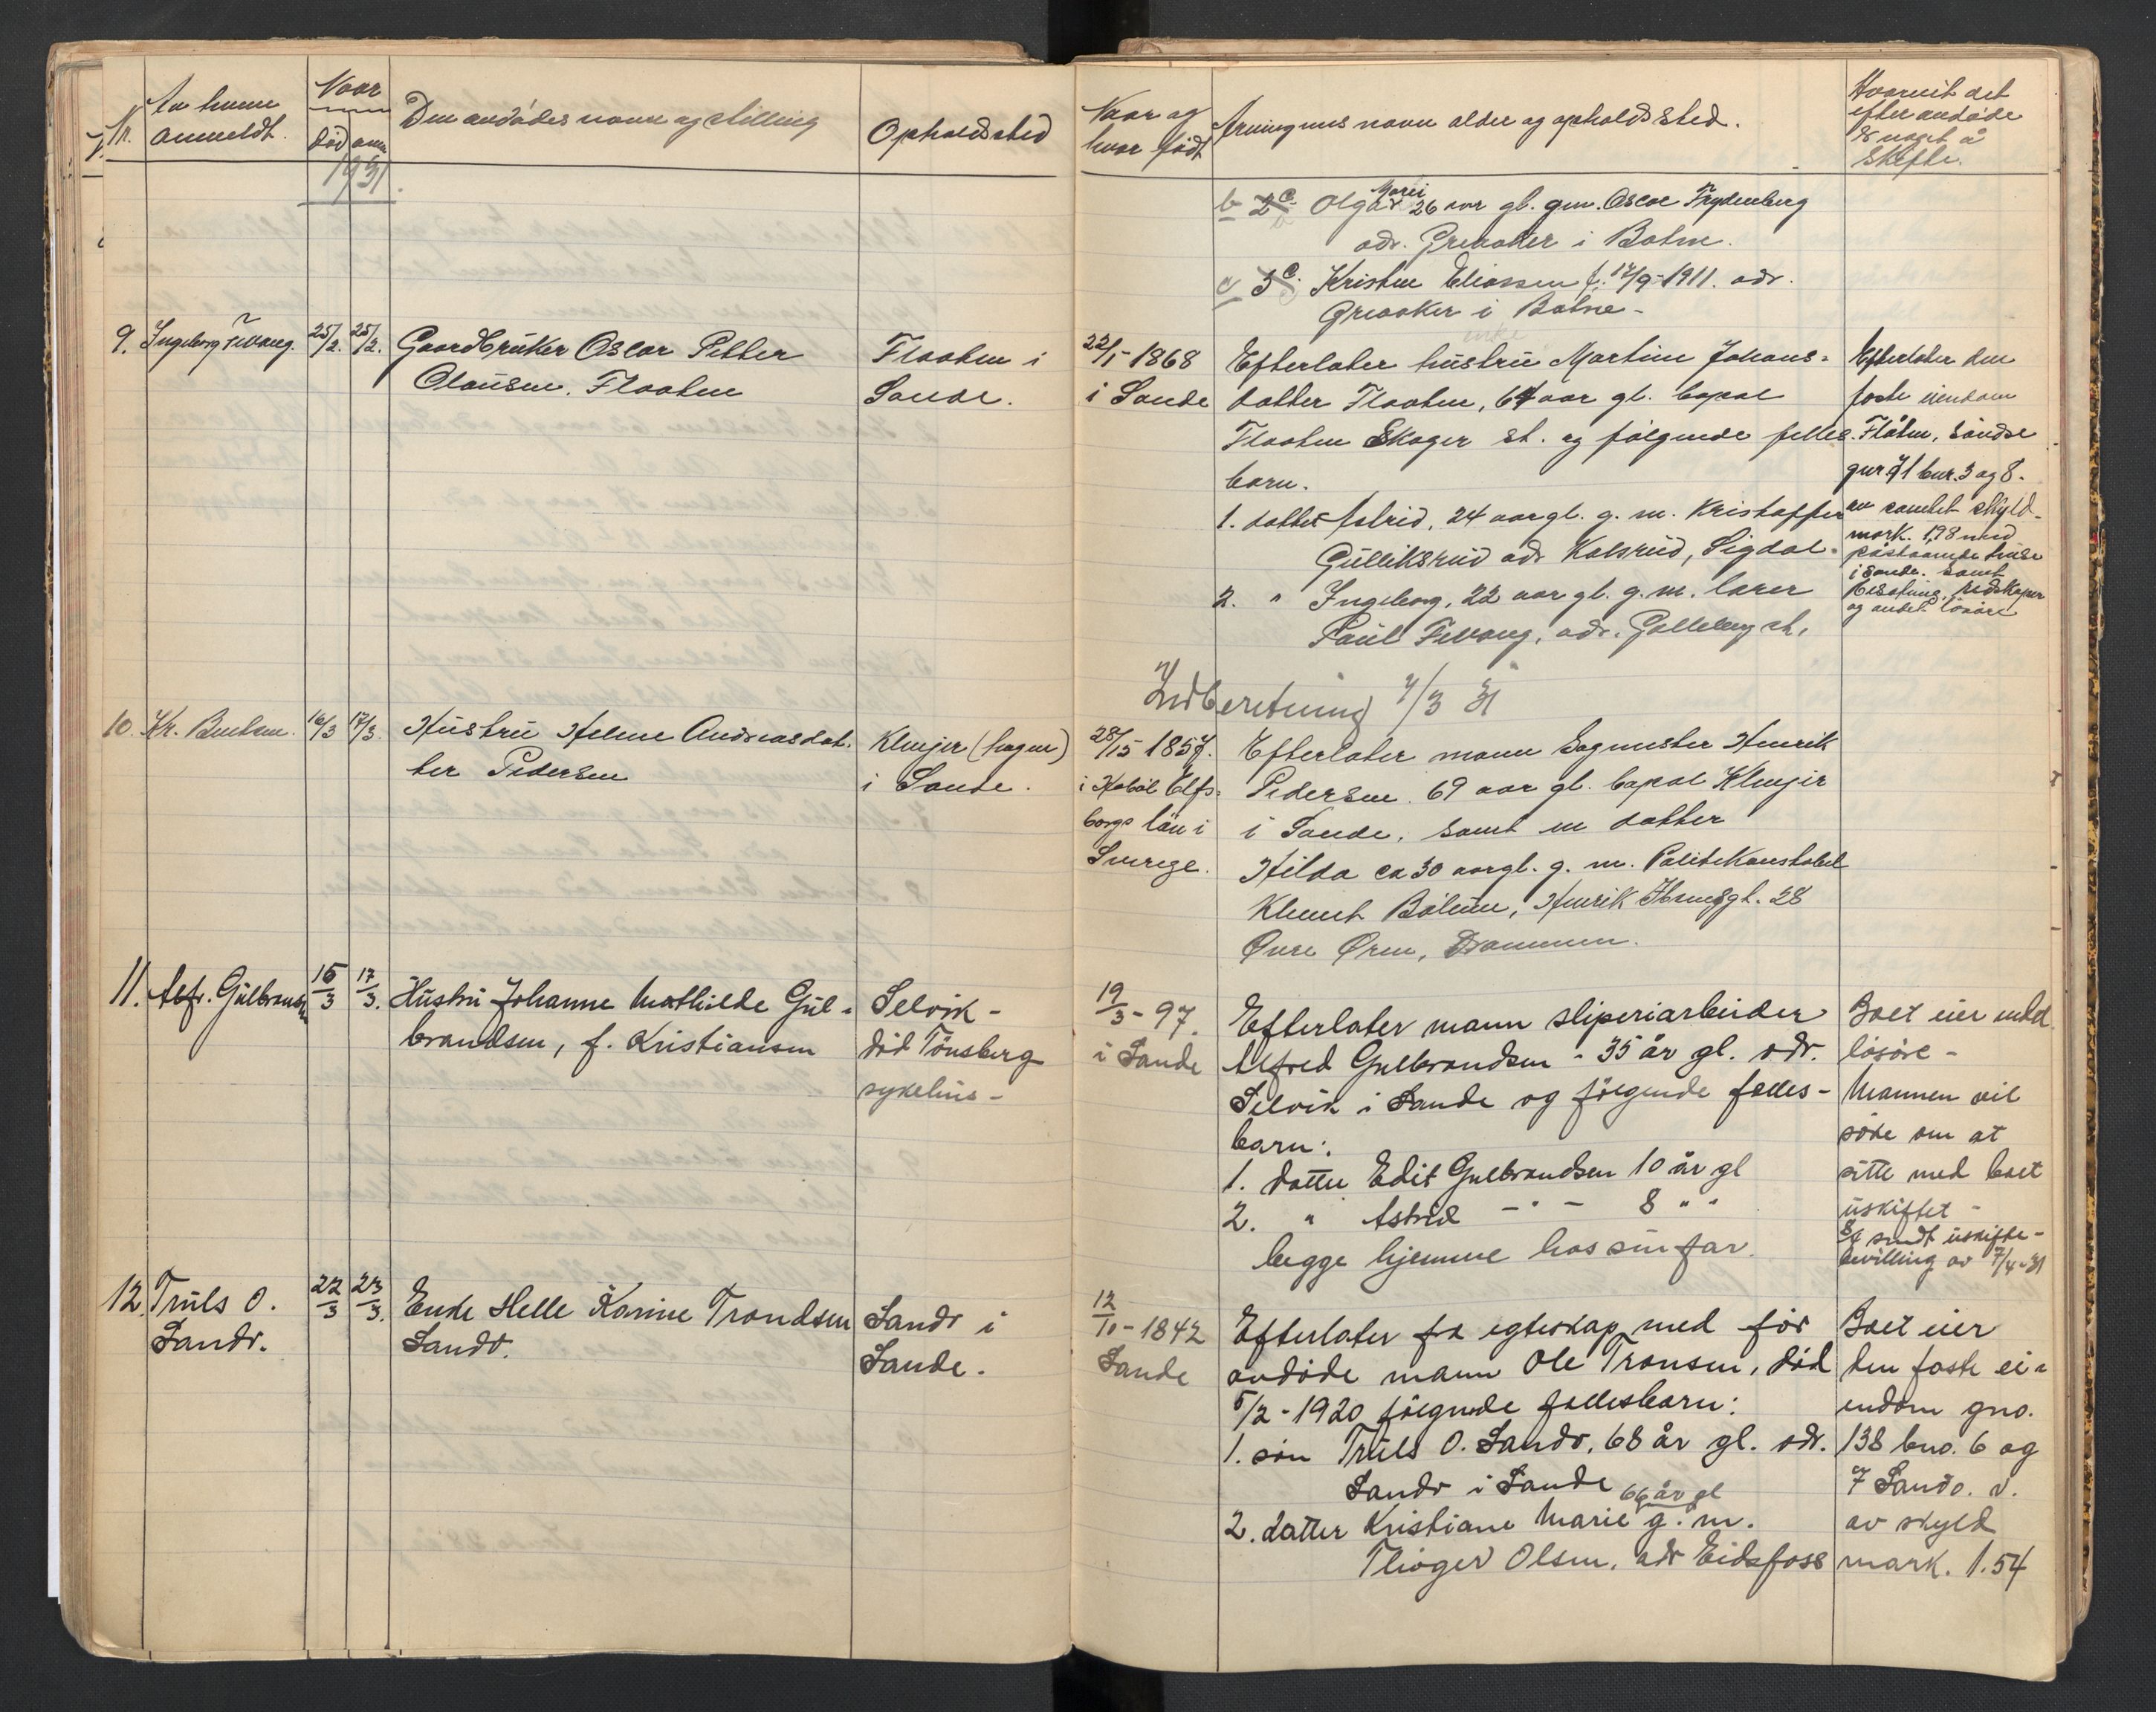 Nr.
Av hvem
anmeldt.
Naar
død anm
Den avdødes navn og stilling
Opholdssted
1931.
9.
Ingeborg Fevang.
25/2.
25/2.
Gaardbruker Oscar Petter
Olausen. Flaaten
Flaaten i
Sande.
10.
Kr. Bentsen.
16/3
17/3.
Hustru Helene Andreasdat-
ter Pedersen
Klevjer (hagen)
i Sande.
11.
Alfr. Gulbrandsen
15/3
17/3.
Hustru Johanne Mathilde Gul-
brandsen, f. Kristiansen
Selvik -
død Tönsberg
sykehus -
12.
Truls O.
Sandø.
22/3
23/3.
Enke Helle Karine Trondsen
Sandø.
Sandø i
Sande.
Naar og
hvor født
Arvingenes navn alder og opholdssted.
Hvorvidt det
efter avdøde
er noget å
skifte.
b 2 c. Olga Marie 26 aar gl. gm. Oscar Frydenberg
adr. Greaaker i Botne.
c 3 c. Kristen Eliassen f. 12/9-1911. adr.
Greaaker i Botne -
22/1-1868
i Sande
Efterlater hustru Martine Johans-
datter Flaaten, 64 aar gl. bopæl
Flaaten Skoger st. og følgende felles-
barn.
1. datter Astrid, 24 aar gl. g. m. Kristoffer
Gulliksrud adr Kolsrud, Sigdal.
2. " Ingeborg, 22 aar gl. g. m. lærer
Paul Fevang, adr. Galleberg st.
Efterlater den
faste eiendom
Flåten, söndre
gnr 71 bnr. 3 og 8.
av samlet skyld-
mark. 1,98 med
påstaaende huse
i Sande. samt
besetning, redskaper
og andet lösöre
Indberetning 7/3 31
28/ 1857.
i Elfs-
borgs län i
Sverige.
Efterlater mann Sagmester Henrik
Pedersen. 69 aar gl. bopæl Klevjer
i Sande, samt en datter
Hilda ca 30 aar gl. g. m. Politikonstabel
Klemet Bölum, Henrik Ibsensgt. 28
Øvre Øren, Drammen.
19/3-97.
i Sande
Efterlater mann sliperiarbeider
Alfred Gulbrandsen - 35 år gl. adr.
Selvik i Sande og følgende felles-
barn:
1. datter Edit Gulbrandsen 10 år gl
2. " Astrid - " - 8 " "
begge hjemme hos sin far.
Boet eier endel
lösöre -
Mannen vil
söke om at
sitte med boet
uskiftet -
8/4 sendt uskifte-
bevilling av 7/4-31
12/10-1842
Sande
Efterlater fra egteskap med før
avdøde mann Ole Tronsen, død
5/2-1920 følgende fellesbarn:
1. sön Truls O. Sandø, 68 år gl. adr.
Sandø i Sande
66 år gl
2. datter Kristiane Marie g. m.
Olsen, adr Eidsfoss
Boet eier
den faste ei-
endom gno.
138 bno. 6 og
7 Sandø. v.
av skyld
mark. 1.54